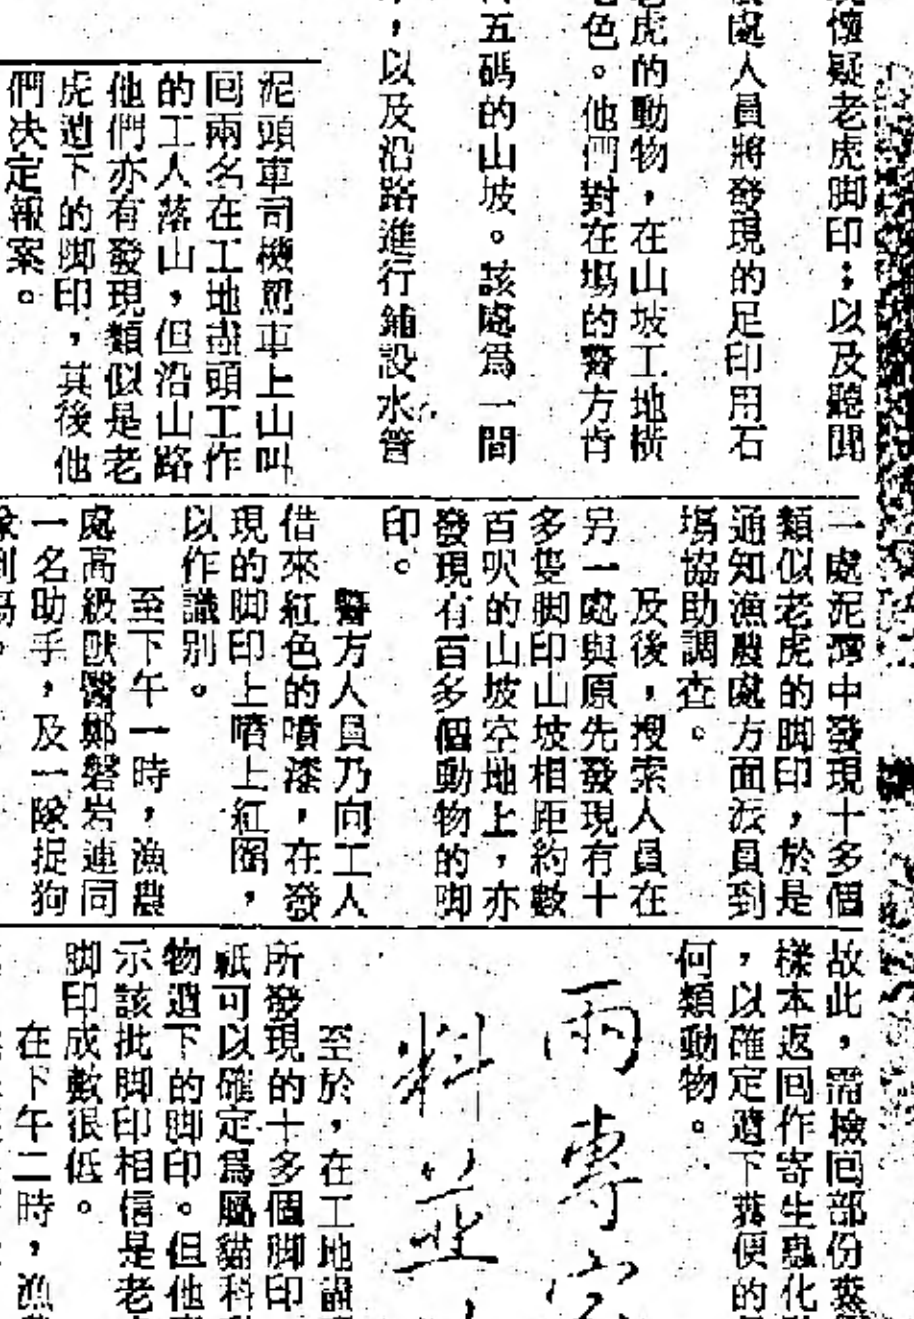 懷疑老虎脚印；以及聽聞
處人員將發現的足印用石
虎的動物，在山坡工地橫
色。他們對在場的警方肯
五碼的山坡。該處爲一間
，以及沿路進行鋪設水管
泥頭車司機駕車上山叫
回兩名在工地盡頭工作
的工人落山，但沿山路
他們亦有發現類似是老
虎遺下的脚印，其後他
們决定報案。
一處泥濘中發現十多個
類似老虎的脚印，於是
通知漁農處方面派員到
場協助調查。
及後，搜索人員在
另一處與原先發現有十
多隻脚印山坡相距約數
百呎的山坡空地上，亦
發現有百多個動物的脚
印。
警方人員乃向工人
借來紅色的噴漆，在發
現的脚印上噴上紅圈，
以作識別。
至下午一時，漁農
處高級獸醫鄭磐岩連同
一名助手，及一隊捉狗
隊到場。
故此，需檢回部份糞
樣本返回作寄生蟲化
，以確定遺下糞便的
何類動物。
兩專家
料並
至於，在工地盡
所發現的十多個脚印
祇可以確定爲屬貓科
物遺下的脚印。但他
示該批脚印相信是老
脚印成數很低。
在下午二時，漁